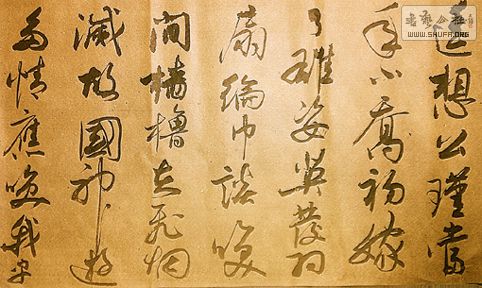 遥想公瑾當
年小喬初嫁
了雄姿英發羽
扇綸巾談咲
間檣櫓灰飛烟
滅故國神遊
多情應咲我早
書藝公社
WWW.SHUFA.ORG